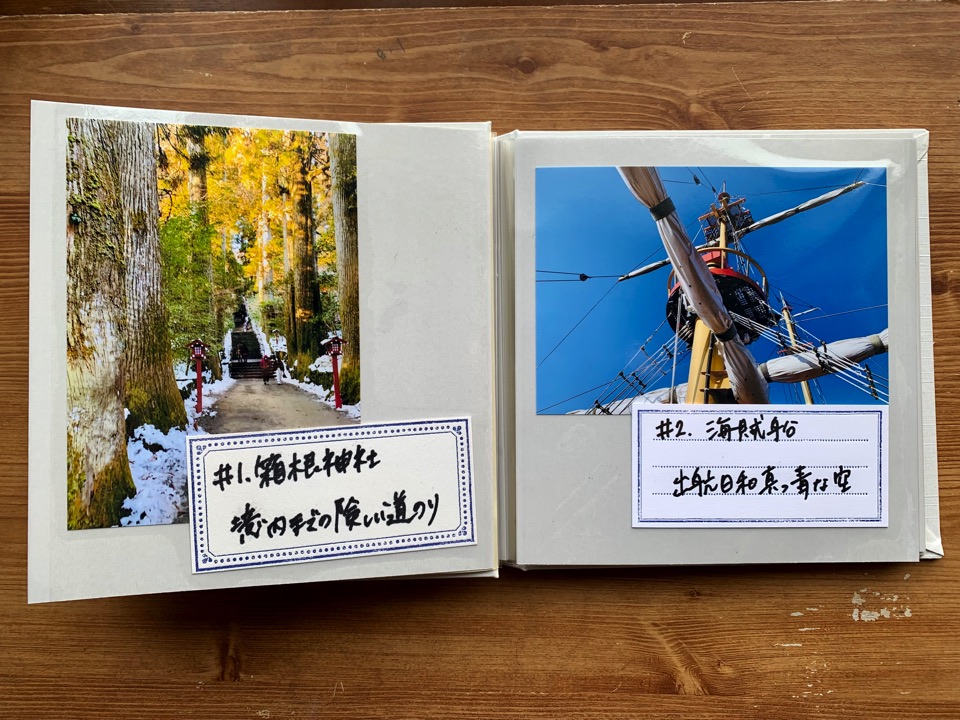 #1. 箱根神社
境内までの険しい道のり
#2. 海賊船
出航日和真っ青な空